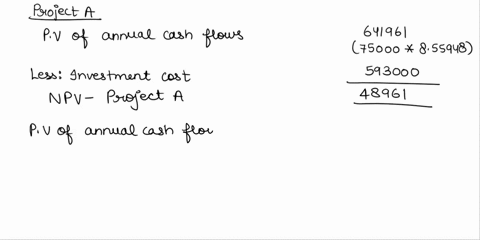 Project A
P.V of annual cash flows 641961
(75000 * 8.55948)
Less: Investment cost 593000
NPV- Project A 48961
P.V of annual cash flow